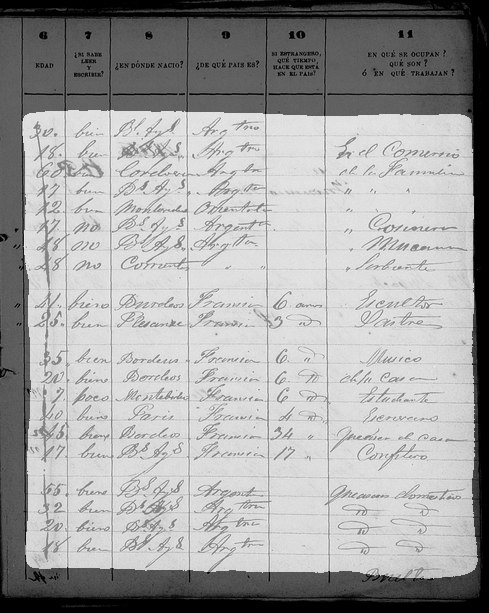 6 7 8 9 10 11
EDAD ¿SI SABE LEER Y ESCRIBIR? ¿EN DÓNDE NACIO? ¿DE QUÉ PAIS ES? SI ESTRANGERO, QUÉ TIEMPO HACE QUE ESTÁ EN EL PAIS? EN QUÉ SE OCUPAN? QUÉ SON? Ó EN QUÉ TRABAJAN?
30. bien Bs. Ays. Argtno
18. bien Argtna En el Comercio
60 Cordovesa Argtna de la Familia
17 bien Bs. Ays. Argtna " " "
12 bien Montevideo Oriental
17 no Bs. Ays. Argent " Cosinera
18 no Bs. Ays. Argtna " Mucama
28 no Corrientes " " " Sirbiente
21. bien Burdeos Francia 6 años Escultor
25. bien Francia 3 Sastre
35 bien Bordeus Francia 6 " Musico
20. bien Bordeos Francia 6 de su Casa
9 poco Montebideo Francia 6 Estudiante
40 bien Paris Francia 4 Escribano
45 bien Bordeos Francia 34 "
17 bien Bs. Ays. Francia 17 " Confitero
55 bien Bs. Ays. Argent
32 bien Bs. Ays. Argtna
20. bien Bs. Ays. Argtna
18 bien Bs. Ays. Argtna